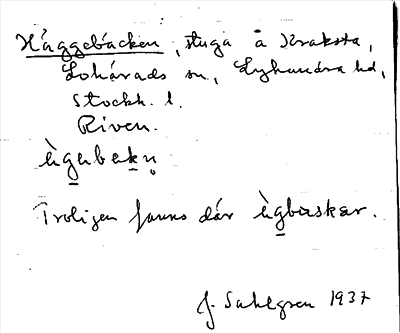 Häggebacken, stuga å Kraksta,
Lohärads sn, Lyhundra hd,
Stockh. l.
Riven.
Troligen fanns där
J. Sahlgren 1937